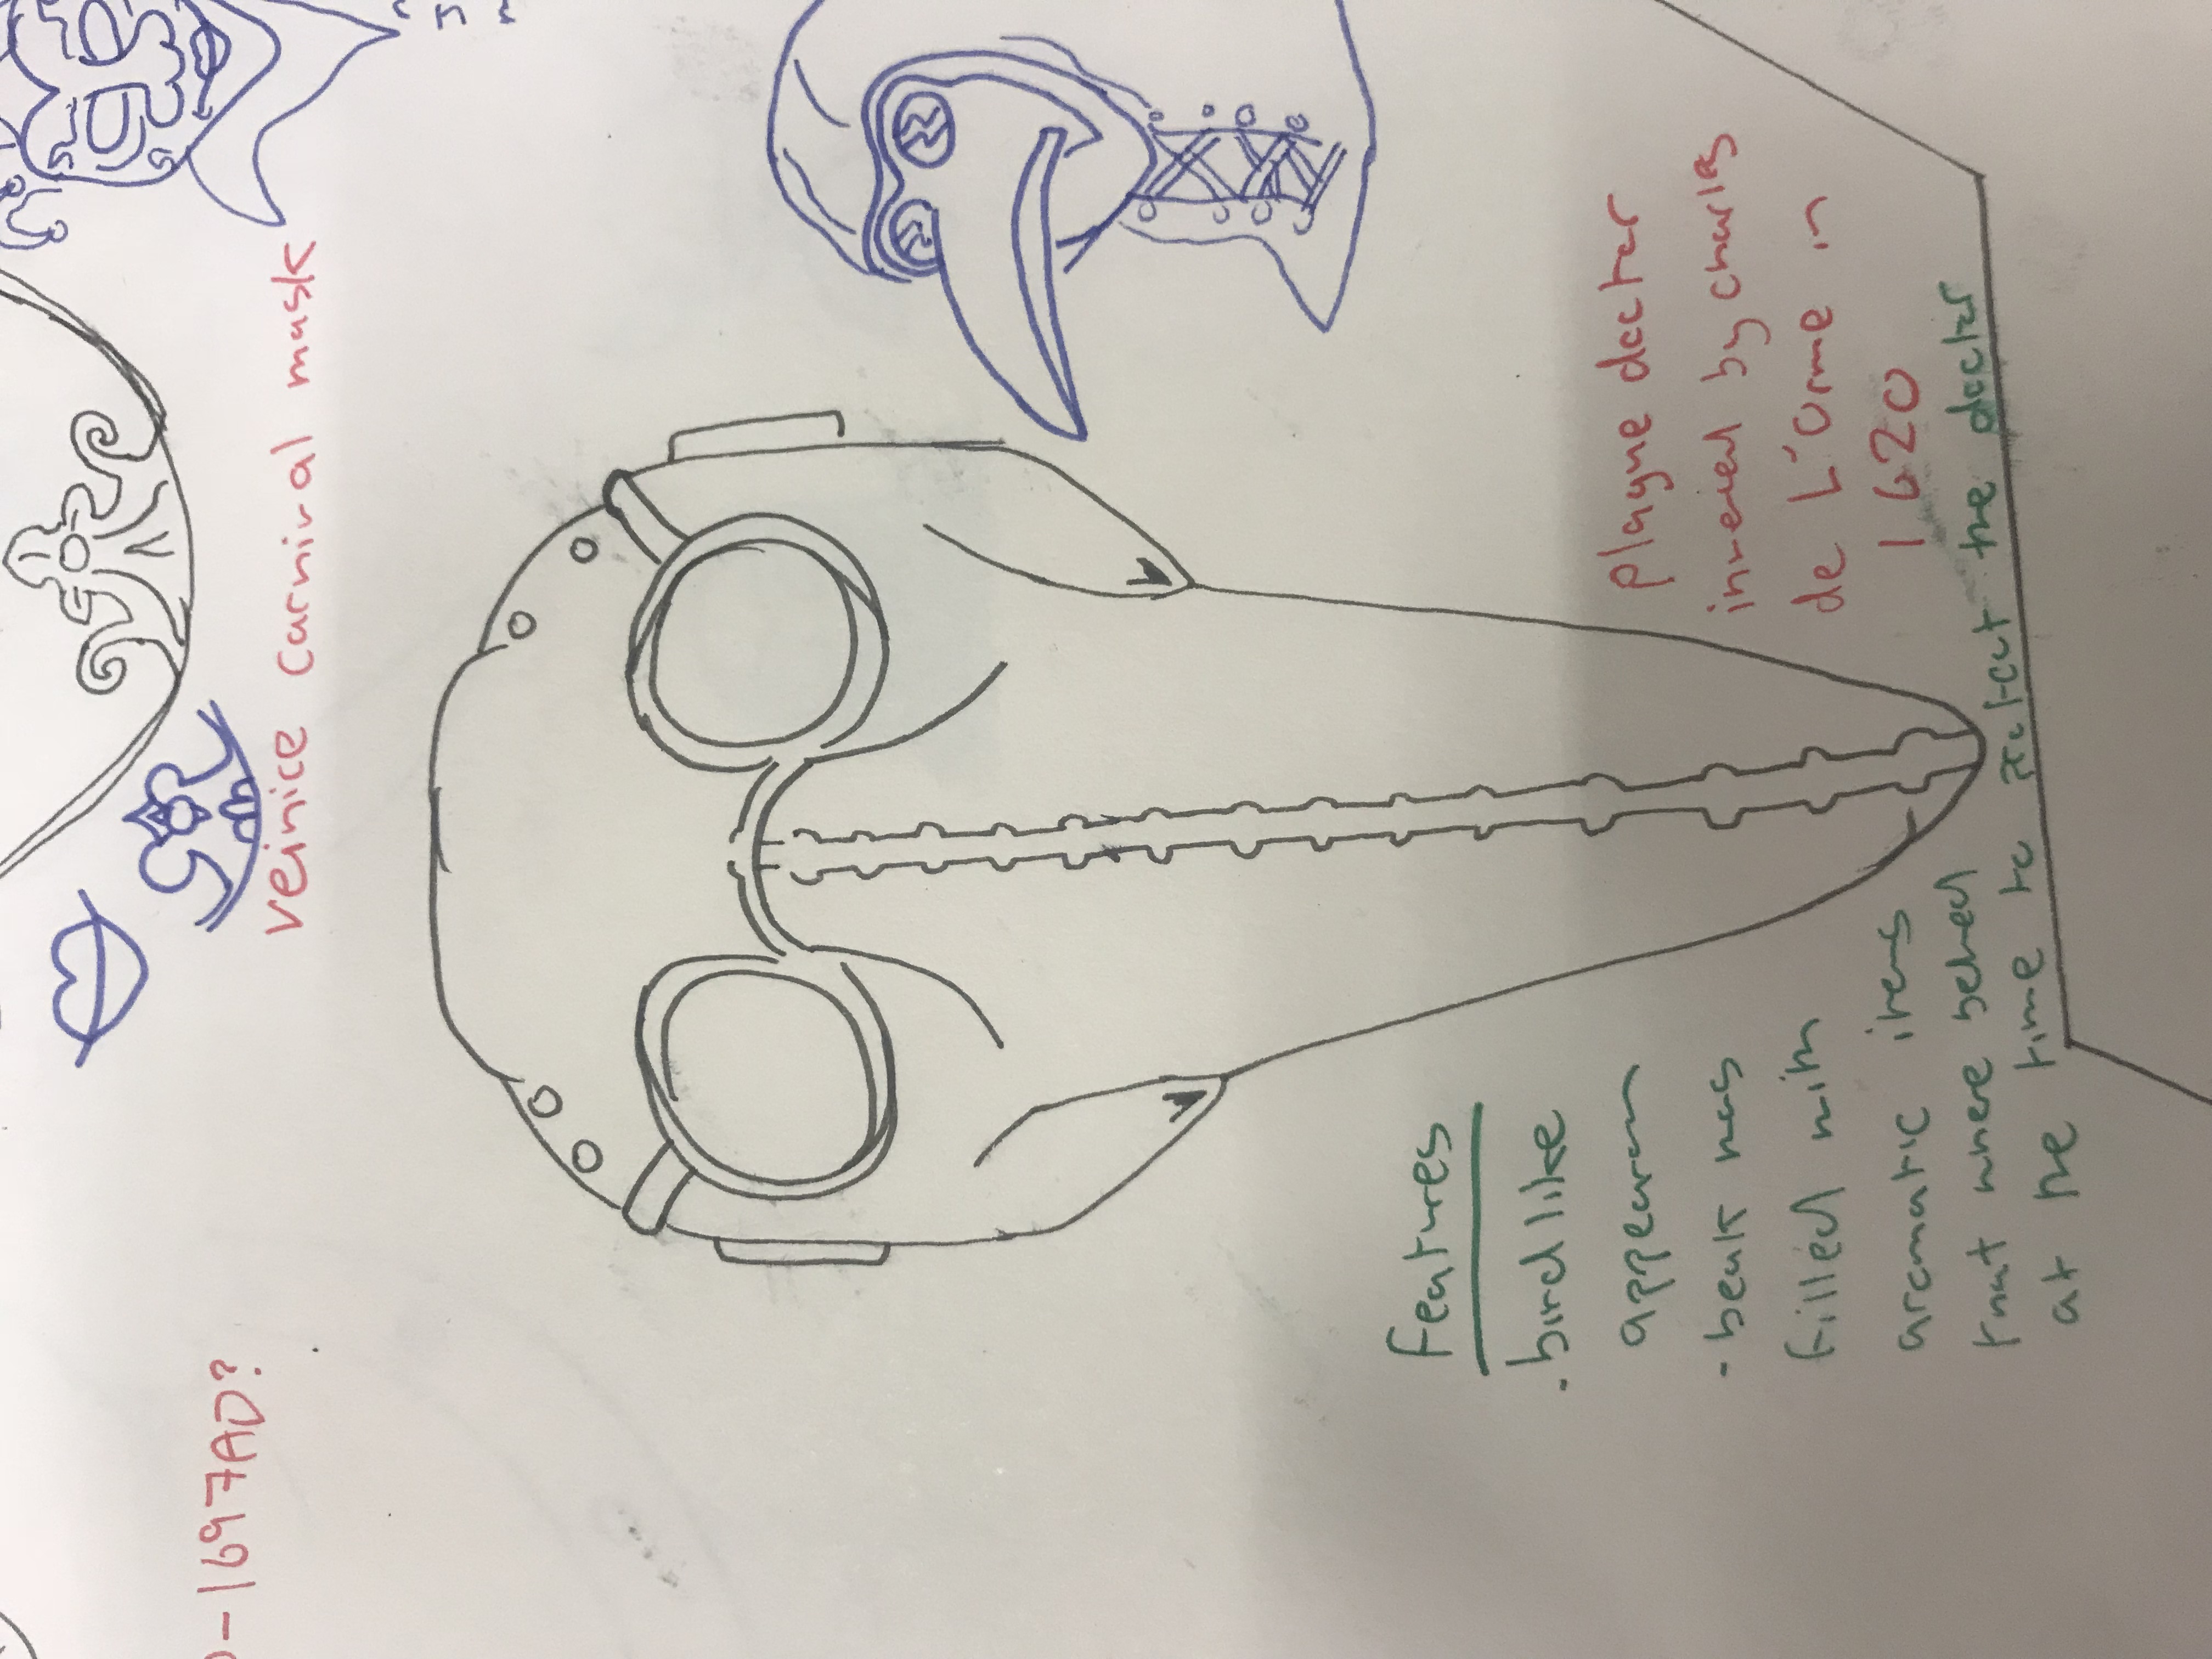 -1697AD?
Veinice carnival mask
Features
- bird like
appearan
- beak was
filled with
aromatic items
that where belived
at the time to protect the doctor
plague doctor
invened by charles
de L'Orme in
1620